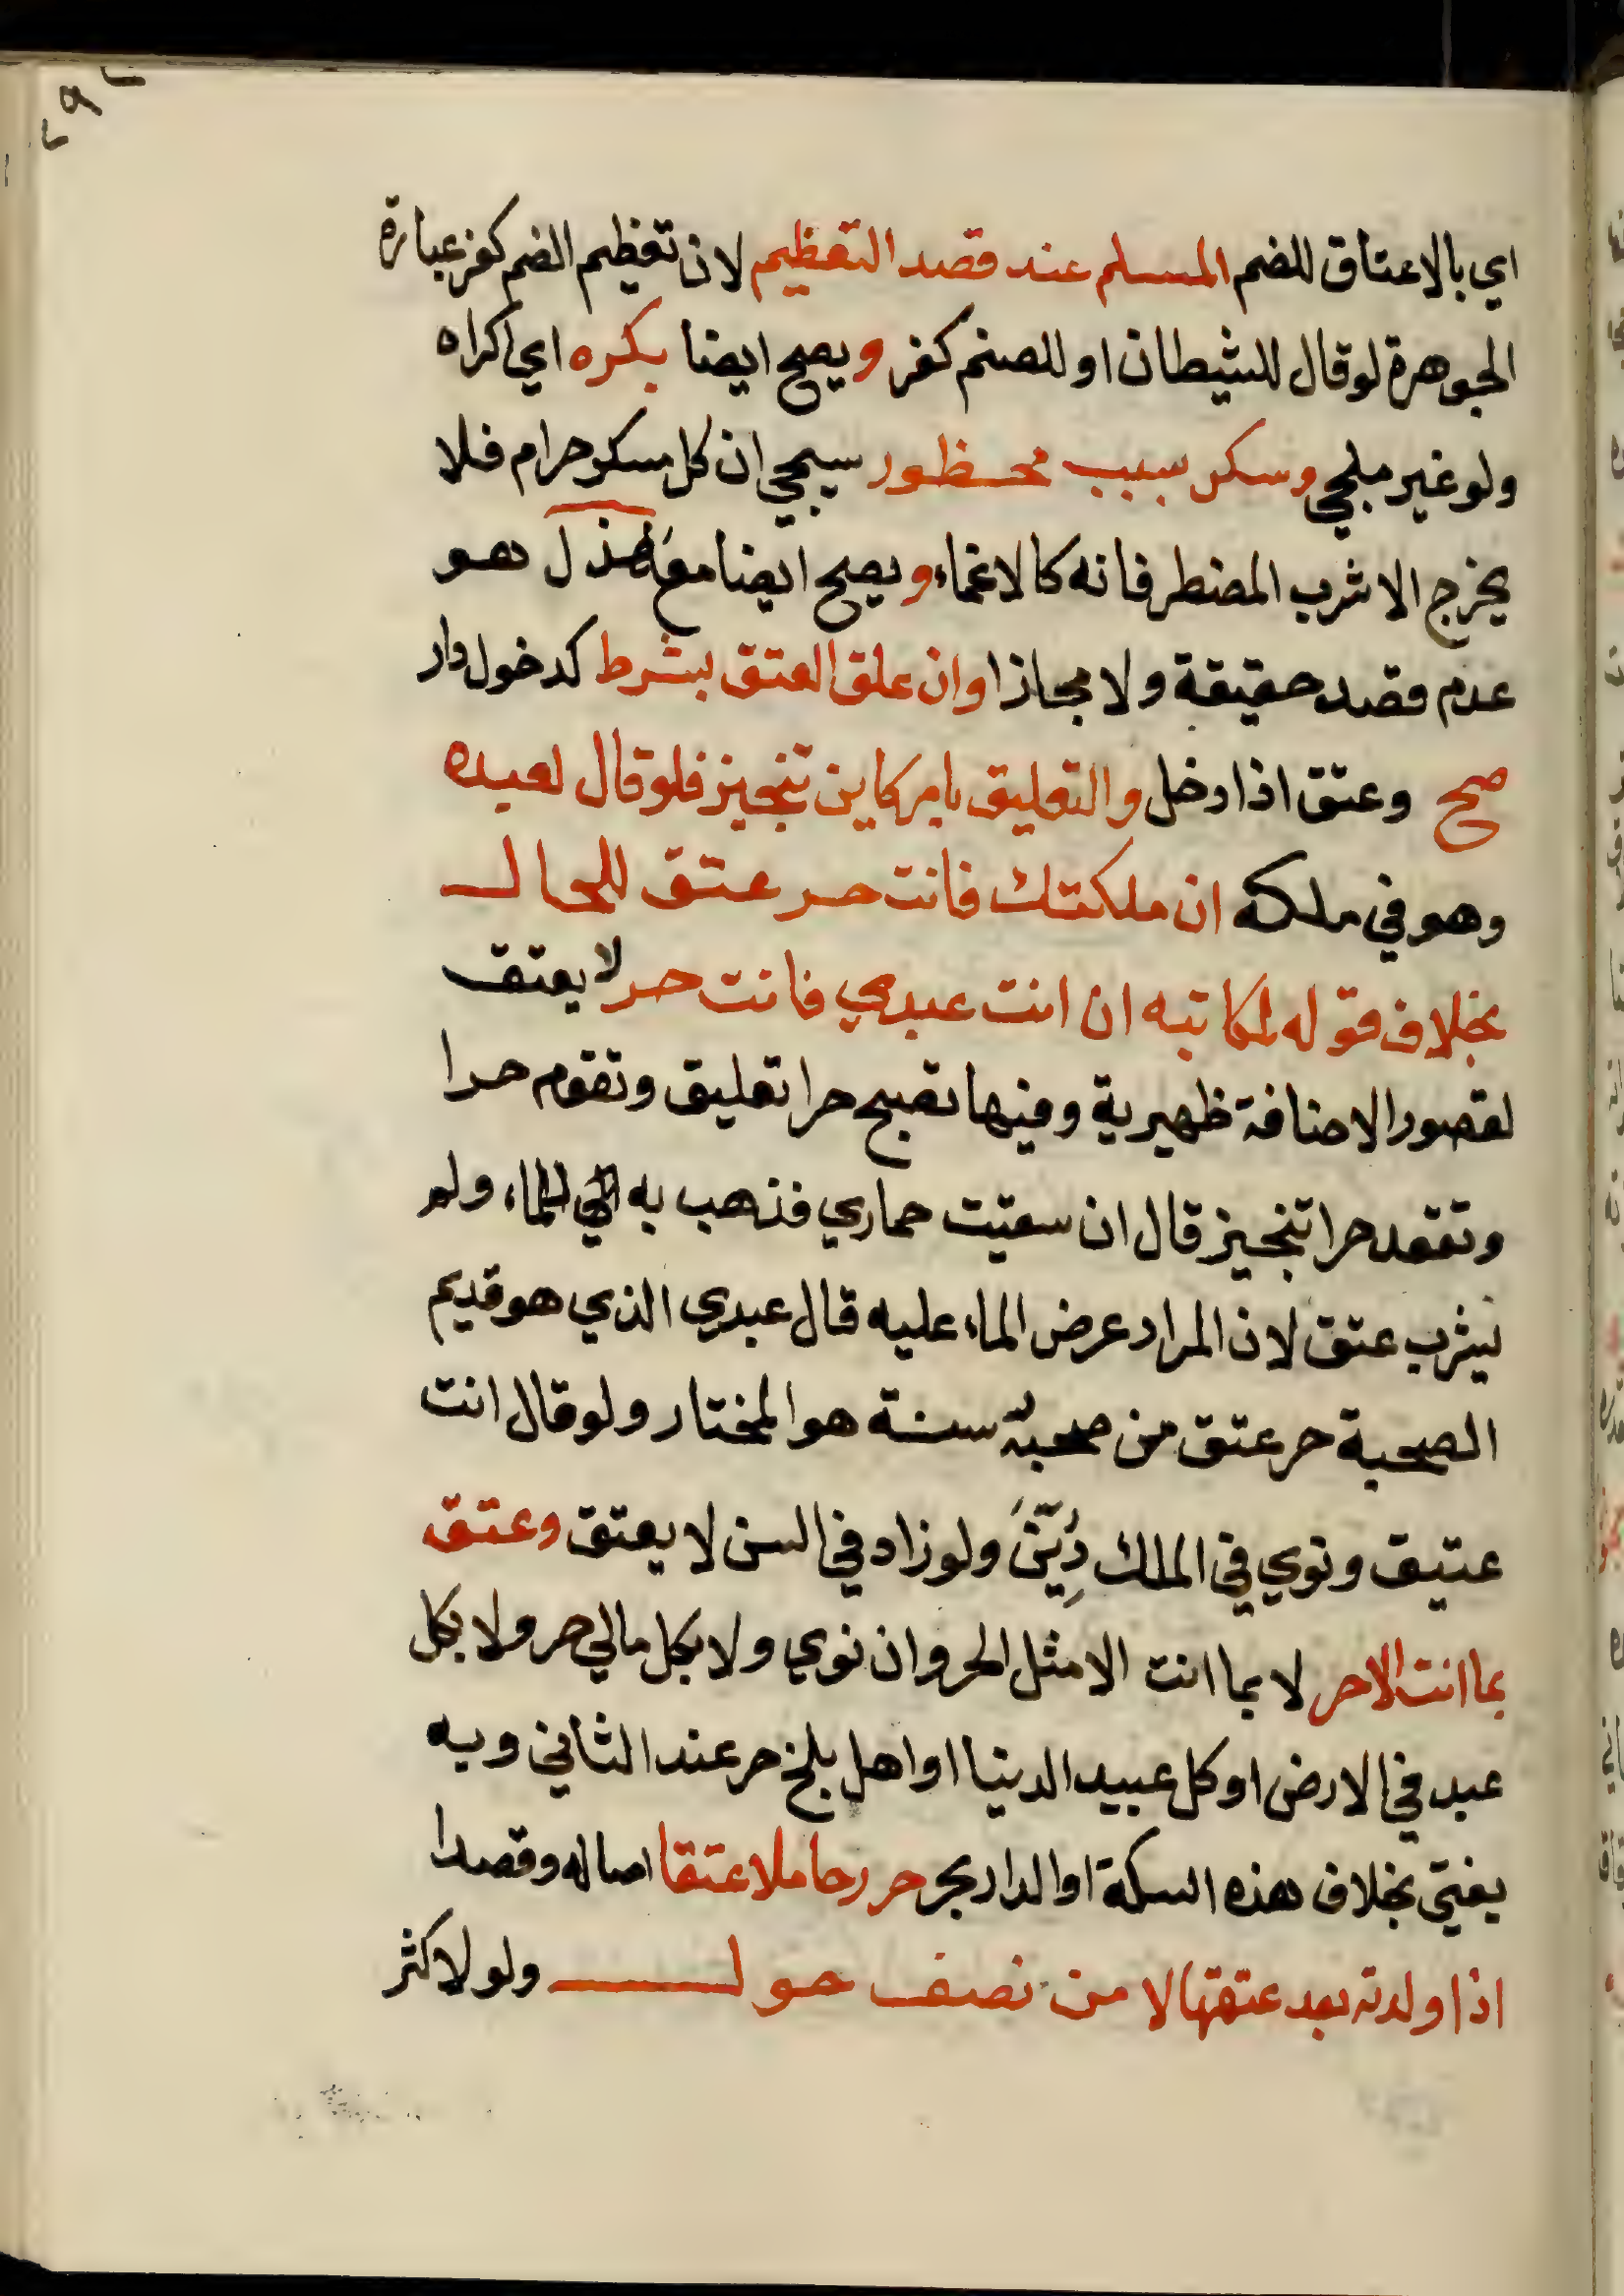 ٢٩٢
اي بالاعتاق للضم المسلم عند قصد التعظيم لان تعظيم الضم كفر عبارة
الجوهرة لو قال للشيطان او للصنم كفر ويصح ايضا بكره اي اكراه
ولو غير ملجي وسكر بسبب محظور سيجي ان كل مسكر حرام فلا
يخرج الا شرب المضطر فانه كالاغماء ويصح ايضا مع هزل هو
عدم قصد حقيقة ولا مجازا وان علق العتق بشرط كدخول دار
صح وعتق اذا دخل والتعليق بامر كاين تنجيز فلو قال لعبده
وهو في ملكه ان ملكتك فانت حر عتق للحال
بخلاف قوله لمكاتبه ان انت عبدي فانت حر لا يعتق
لقصور الاضافة ظهيرية وفيها تصبح حرا تعليق وتقوم حرا
وتقعد حرا تنجيز قال ان سقيت حماري فذهب به الي الماء ولم
يشرب عتق لان المراد عرض الماء عليه قال عبدي الذي هو قديم
الصحبة حر عتق من صحبته سنة هو المختار ولو قال انت
عتيق ونوي في الملك دُيِّنَ ولو زاد في السن لا يعتق وعتق
بما انت الا حر لا بما انت الا مثل الحر وان نوي ولا بكل مالي حر ولا بكل
عبد في الارض او كل عبيد الدنيا او اهل بلخ حر عند الثاني وبه
يفتي بخلاف هذه السكة او الدار بحر حرر حاملا عتقا اصاله وقصدا
اذا ولدته بعد عتقها لا من نصف حول ولو لاكثر